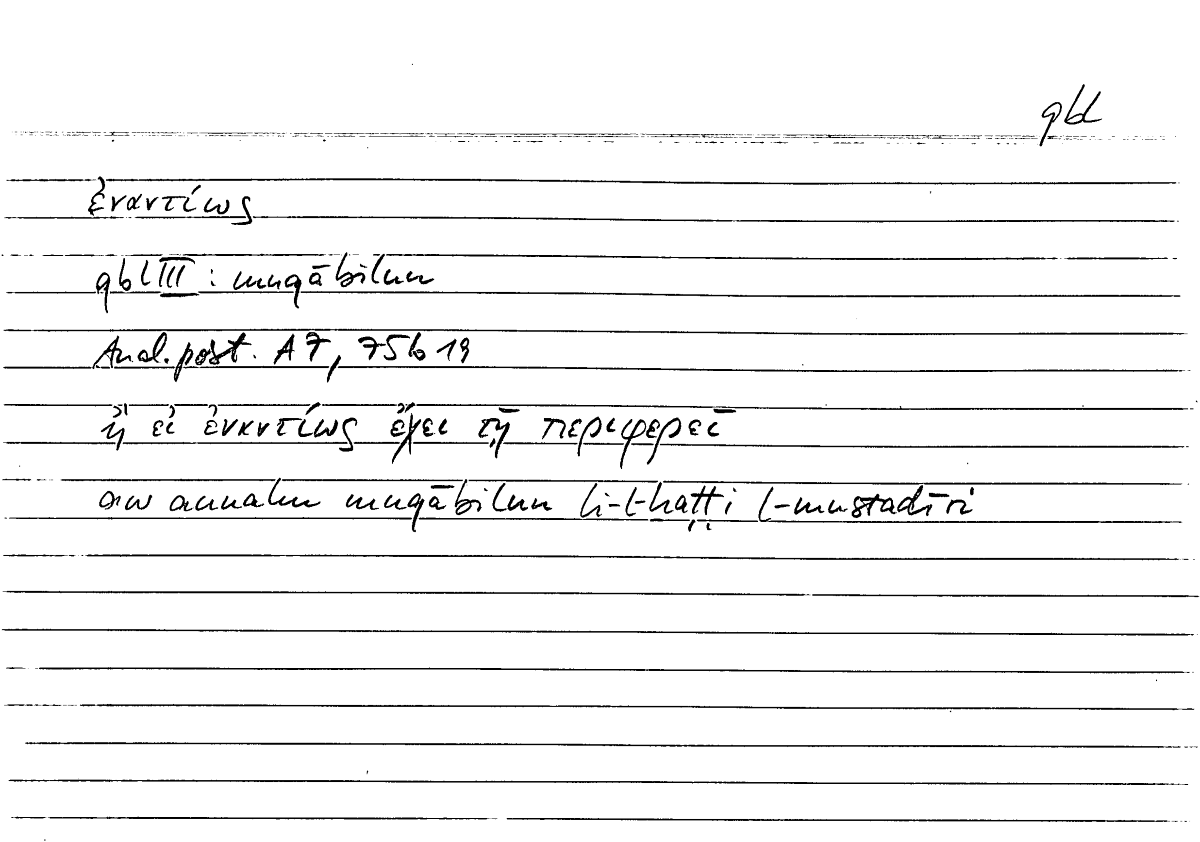 qbl
ἐναντίως
qbl III : muqābilun
Anal. post. A 7, 75b 19
ἢ εἰ ἐναντίως ἔχει τῇ περιφερεῖ
aw annahu muqābilun li-l-ḫaṭṭi l-mustadīri